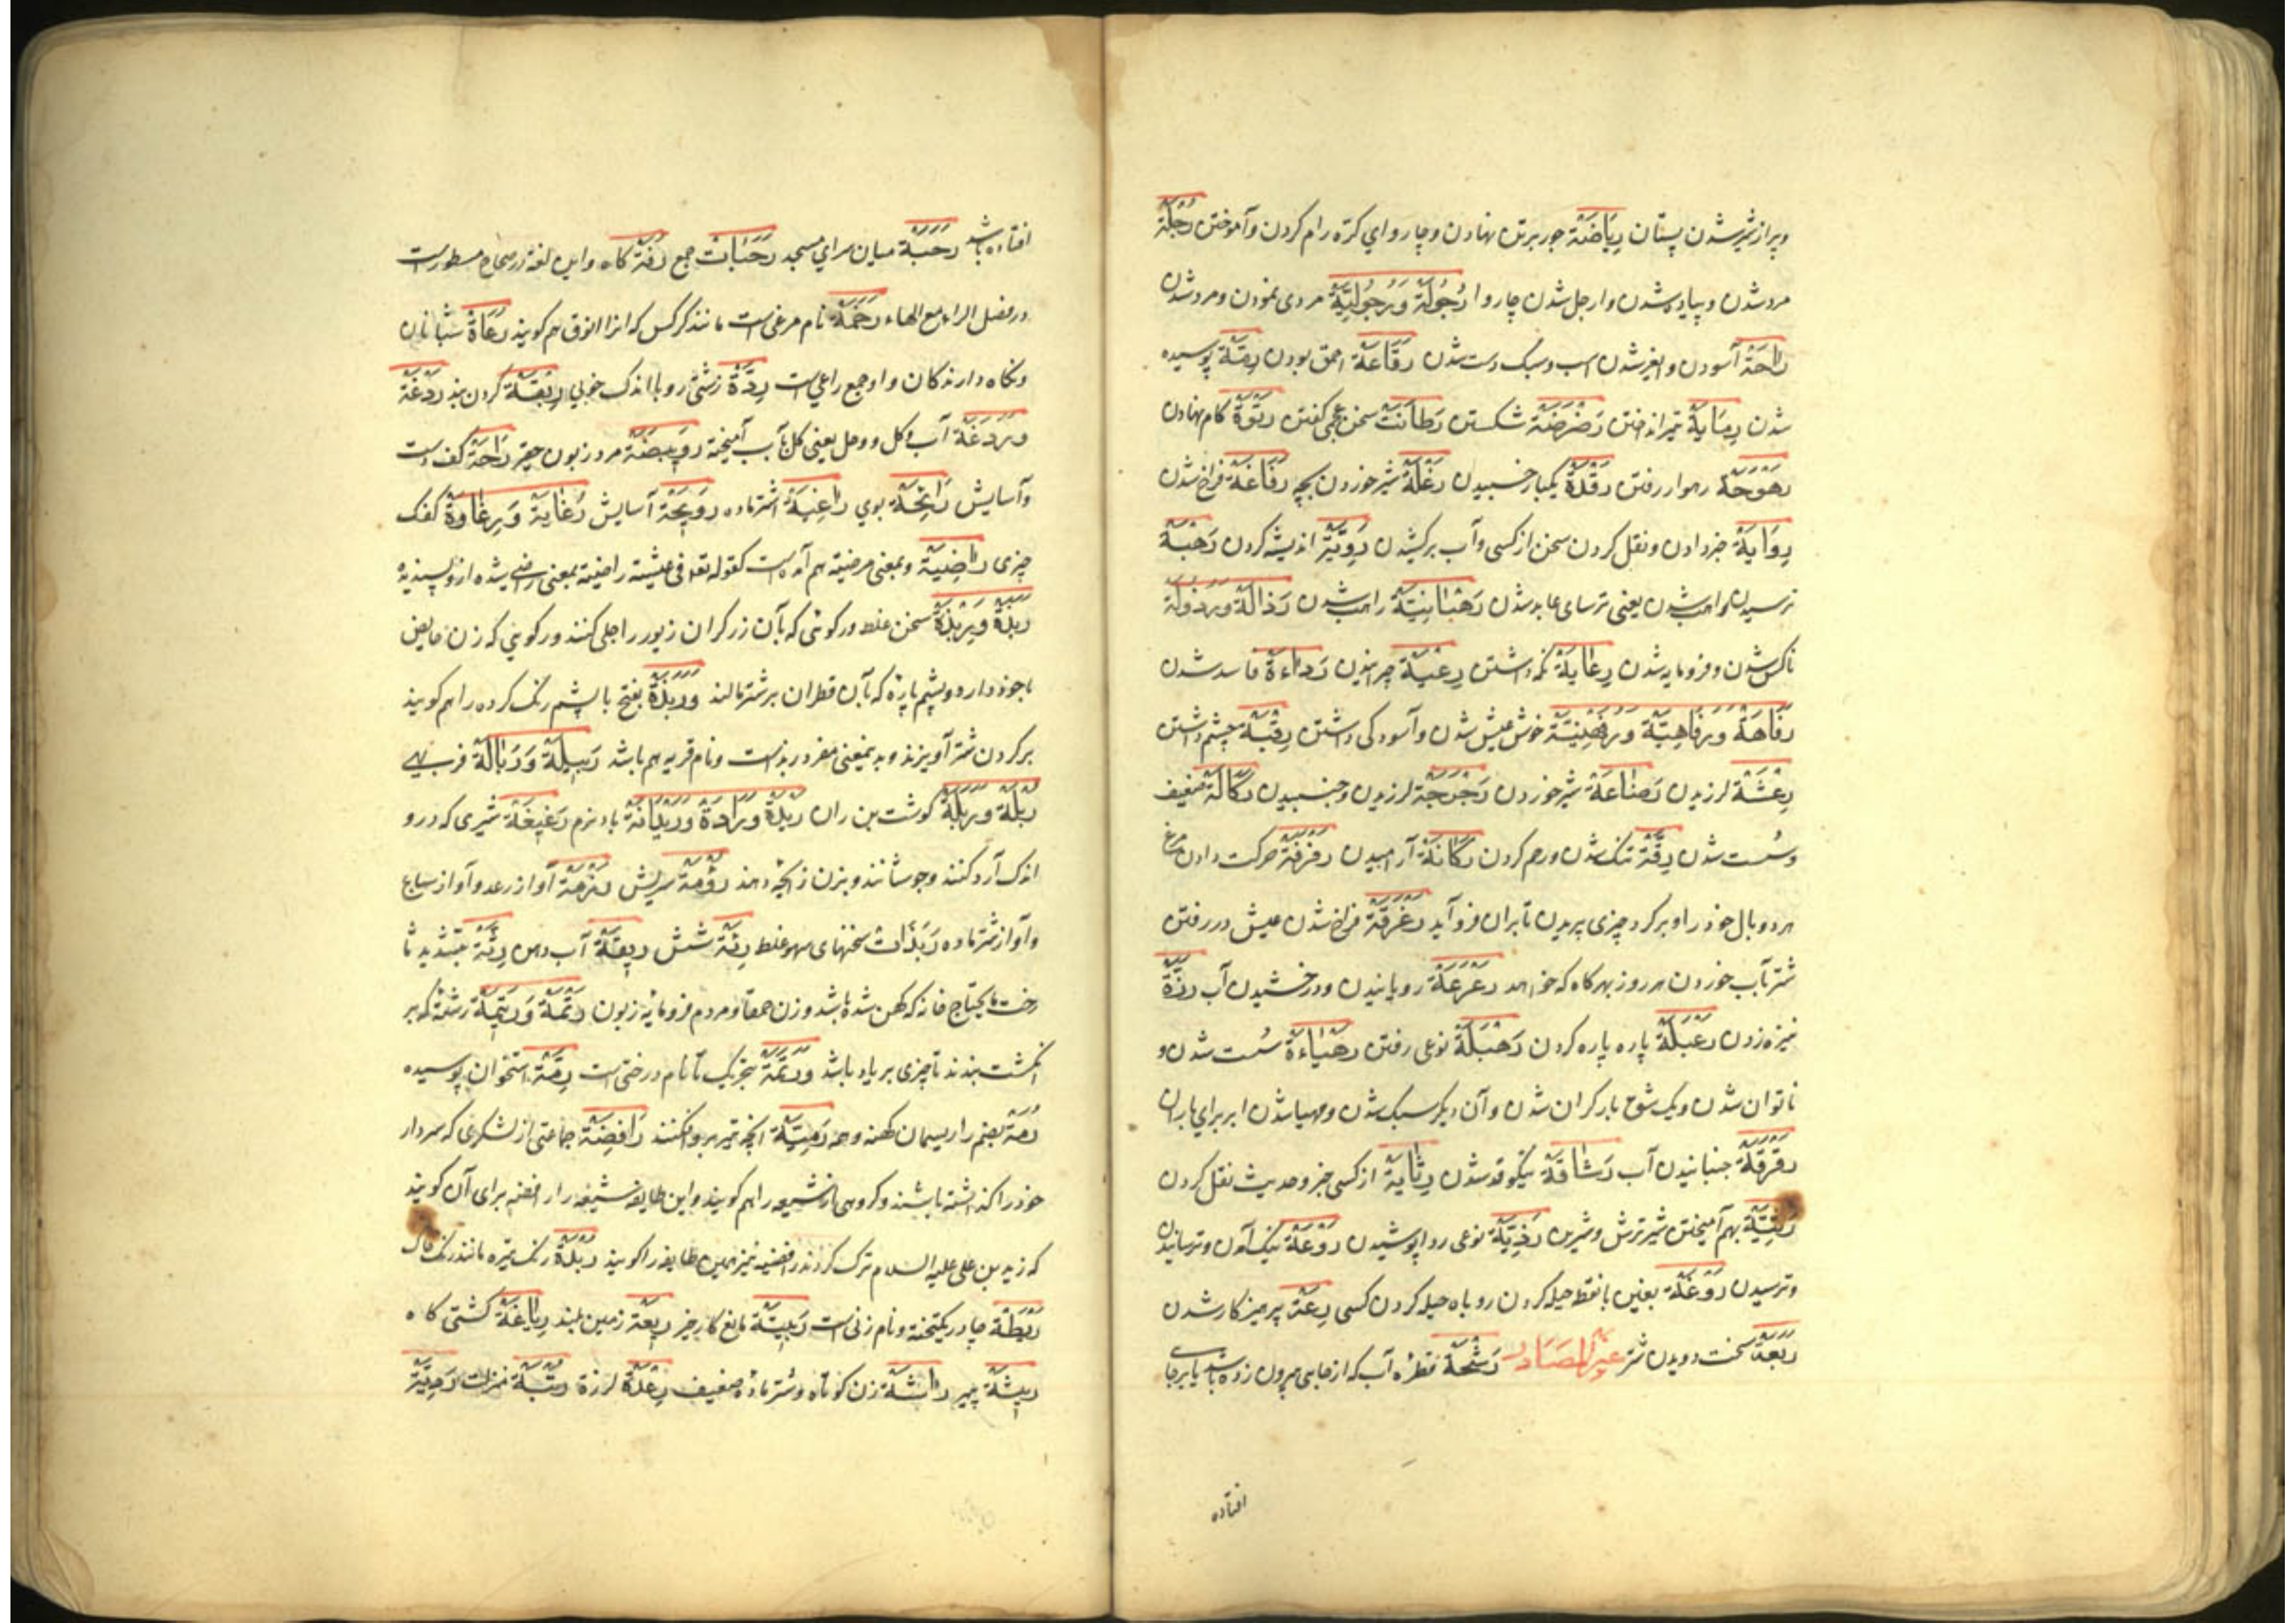 و پر از شیر شدن پستان رِیَاضَة جور برتن نهادن و چاروای کرّه رام کردن و آموختن رُجْلَة
مرد شدن و پیاده شدن و ارجل شدن چاروا رُجُولَة وَرُجُولِیَّة مردی نمودن و مرد شدن
رَاحَة آسودن و شدن اسب و سبک دست شدن رَقَاعَة احمق بودن رِمَّة پوسیده
شدن رِمَایَة تیر انداختن رَضْرَضَة شکستن رَطَانَت سخن عجمی گفتن رَتْوَة کام نهادن
رَهْوَجَة رهوار رفتن رَقْدَة یکبار خسبیدن رَغْلَة شیر خوردن بچه رَفَاغَة فراخ شدن
رِوَایَة خبر دادن و نقل کردن سخن از کسی و آب برکشیدن رَوِیَّة اندیشه کردن رَهْبَة
ترسیدن و راهب شدن یعنی ترسای عابد شدن رَهْبَانِیَّة راهب شدن رَذَالَة وَرُذُولَة
ناکس شدن و فرومایه شدن رِعَایَة نگه داشتن رِعْیَة چرانیدن رَدَاءَة فاسد شدن
رَفَاهَة وَرَفَاهِیَّة وَرُفَهْنِیَّة خوش عیش شدن و آسودگی داشتن رِقْبَة چشم داشتن
رِعْشَة لرزیدن رَضَاعَة شیر خوردن رَجْرَجَة لرزیدن و جنبیدن رَکَاکَة ضعیف
و سُست شدن رِقَّة تنک شدن و رحم کردن رَکَانَة آرامیدن رَفْرَفَة حرکت دادن مرغ
هر دو بال خود را و بر گرد چیزی پریدن تا بران فرو آید رَغْرَغَة فراخ شدن عیش و در رفتن
شتر بآب خوردن هر روز بهر گاه که خواهد رَعْرَعَة رویانیدن و درخشیدن آب رَزَّة
نیزه زدن رَعْبَلَة پاره پاره کردن رَهْبَلَة نوعی رفتن رَهْیَاءَة سُست شدن و
ناتوان شدن و یک سُوی بار گران شدن و آن دیگر سبک شدن و مهیا شدن ابر برای باران
رَقْرَقَة جنبانیدن آب رَشَاقَة نیکو قد شدن رِثَایَة از کسی خبر و حدیث نقل کردن
رَثِیَّة بهم آمیختن شیر ترش و شیرین رَدْیَة نوعی ردا پوشیدن رَوْعَة نیک آمدن و ترسانیدن
و ترسیدن رَوْغَة بغین با نقطه حیله کردن روباه حیله کردن کسی رِعَة پرهیزکار شدن
رَبَعَة سخت دویدن شتر غیر المصادر رَشْحَة قطرهٔ آب که از جایی بیرون زده باشد یا بر جا
افتاده
افتاده باشد رَحَبَة میان سرای مسجد رَحَبَات جمع رُفَة کاه و این لغة در صحاح مسطورست
در فصل الراء مع الهاء رَخَمَة نام مرغی است مانند کرکس که انرا انوق هم گویند رُعَاة شبانان
و نگاه دارندگان و او جمع راعی است رِدَّة زشتی رو با اندک خوبی رِبْقَة گردن بند رَدْغَة
وَرَدَغَة آب و گل و وحل یعنی گل بآب آمیخته رُوَیْبِضَة مرد زبون حقیر رَاحَة کف دست
و آسایش رَائِحَة بوی رَاغِیَة اشتر ماده رَوِیحَة آسایش رُغَایَة وَرِغَاوَة کفک
چیزی رَاضِیَة و بمعنی مرضیّة هم آمده است کقوله تعه فی عیشة راضیة بمعنی راضی شده از و پسندیده
رَبَذَة وَرِبْذَة سخن غلط و رکوئی که بآن زرگران زیور را جلی کنند و رکویی که زن حایض
باخود دارد و پشم پارهٔ که بآن قطران بر شتر مالند وَرَبَذَة بفتح با پشم رنگ کرده را هم گویند
بر گردن شتر آویزند و بدین معنی مفرد ربذ است و نام قریه هم باشد رَبِیلَة وَرَبَالَة فربهی
رَبْلَة وَرَبَلَة گوشت بن ران رَیْدَة وَرَادَة وَرَیْدَانَة باد نرم رَغِیغَة شیری که درو
اندک آرد کنند و جوشانند و بزن زچه دهند رُؤْمَة سریش رَزَمَة آواز رعد و آواز سباع
و آواز شتر ماده رَبَذَات سخنهای سهو غلط رِئَة شش رِیقَة آب دهن رِثَّة بتشدید ثا
رخت ما یحتاج خانه که کهن شده باشد و زن حمقا و مردم فرومایه زبون رَتْمَة وَرَتِیمَة رشتهٔ که بر
انگشت بندند تا چیزی بر یاد باشد وَرَتَمَة بتحریک تا نام درختی است رِمَّة استخوان پوسیده
رُمَّة بضم را ریسمان کهنه و همه رَمِیَّة آنچه تیر برو افکنند رَافِضَة جماعتی از لشکری که سردار
خود را گذاشته باشند و گروهی از شیعه را هم گویند و این طایفه شیعه را رافضه برای آن گویند
که زید بن علی علیه السلام ترک کردند رافضیه نیز همین طایفه را گویند رُبْدَة رنگ تیره مانند رنگ خاک
رَیْطَة چادر یکتخته و نام زنی است رَبِیثَة مانع کار خیر رِیعَة زمین بلند رِیَاغَة کشتی گاه
رِیشَة پر رَاشَة زن کوتاه و شتر مادهٔ ضعیف رِعْدَة لرزه رُتْبَة منزلت رَعِیَّة